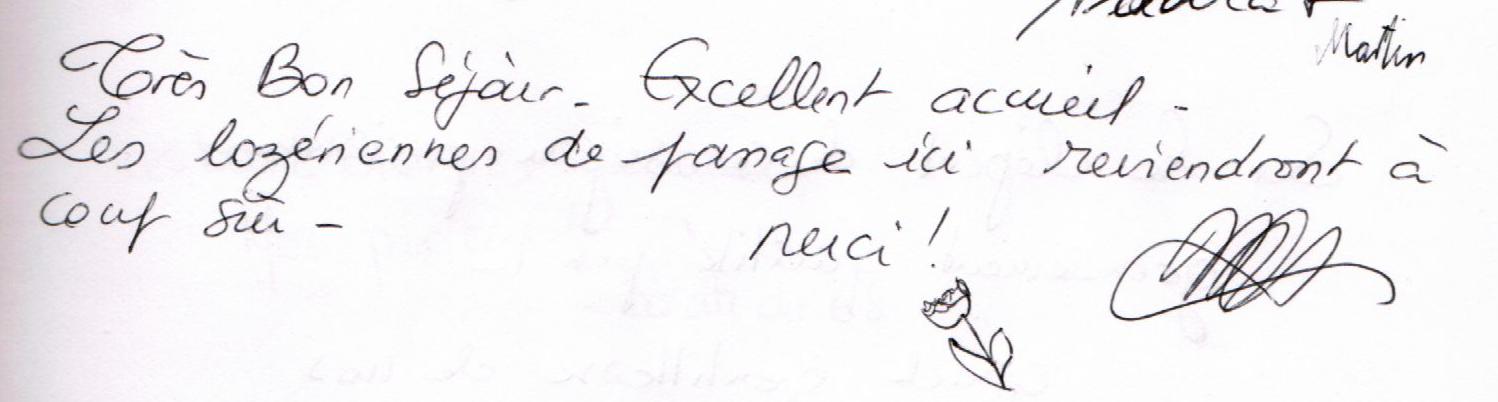 Martin
Très Bon Séjour. Excellent accueil -
Les lozériennes de passage ici reviendront à
coup sûr -
merci !